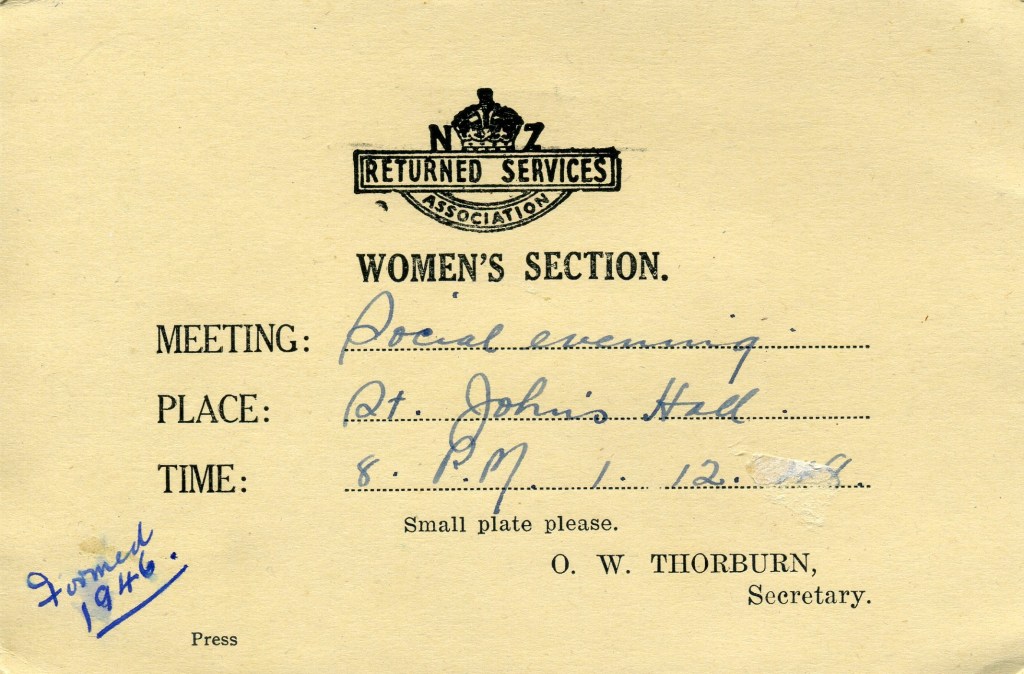 N Z
RETURNED SERVICES
ASSOCIATION
WOMEN'S SECTION.
MEETING: Social evening.
PLACE: St. John's Hall.
TIME: 8. P.M. 1. 12.
Small plate please.
O. W. THORBURN,
Secretary.
Formed
1946.
Press